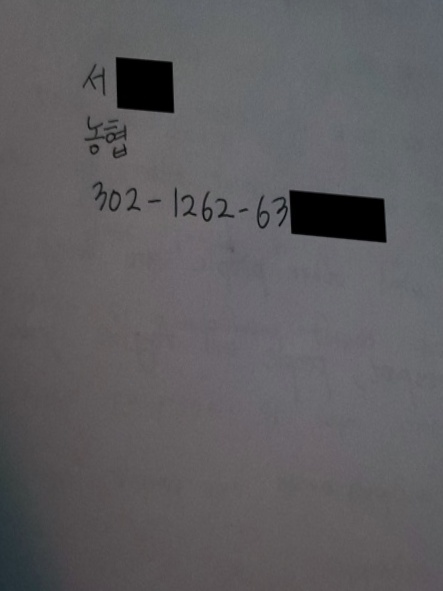 서
농협
302-1262-63